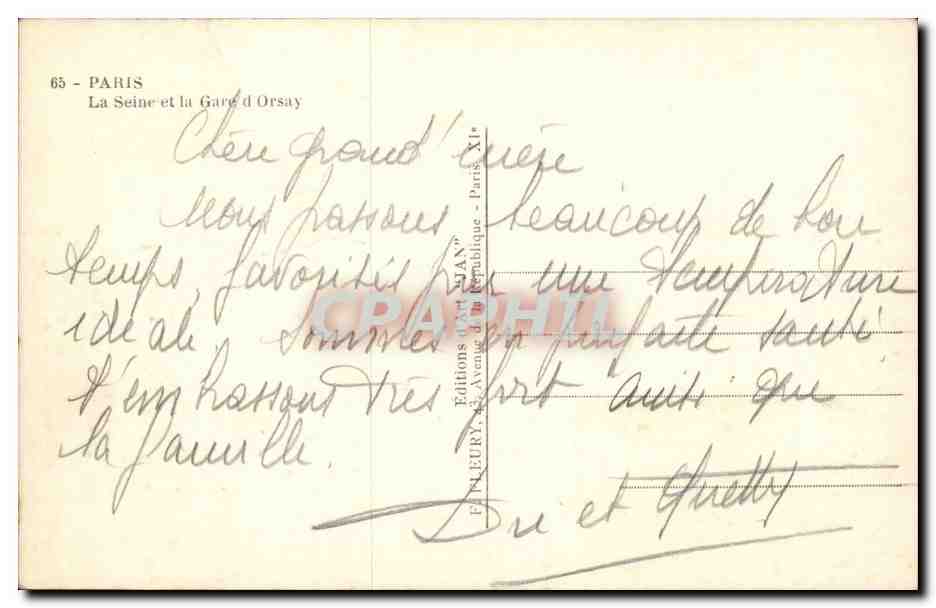 65 - PARIS
La Seine et la Gare d'Orsay
Chère grand'mère
Nous passons beaucoup de bon
temps, favorisés par une température
idéale. Sommes en parfaite santé
t'embrassons très fort ainsi que
la famille.
et
Editions d'Art "JAN"
F. FLEURY, 43, Avenue de la République - Paris XIe
CPARAMA CRAPHIL